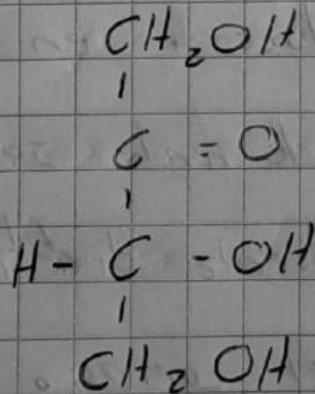 CH₂OH
|
C = O
|
H - C - OH
|
CH₂ OH